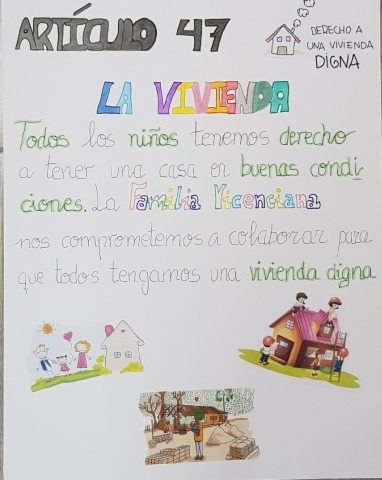 ARTÍCULO 47
DERECHO A
UNA VIVIENDA
DIGNA
LA VIVIENDA
Todos los niños tenemos derecho
a tener una casa en buenas condi-
ciones. La Familia Vicenciana
nos comprometemos a colaborar para
que todos tengamos una vivienda digna